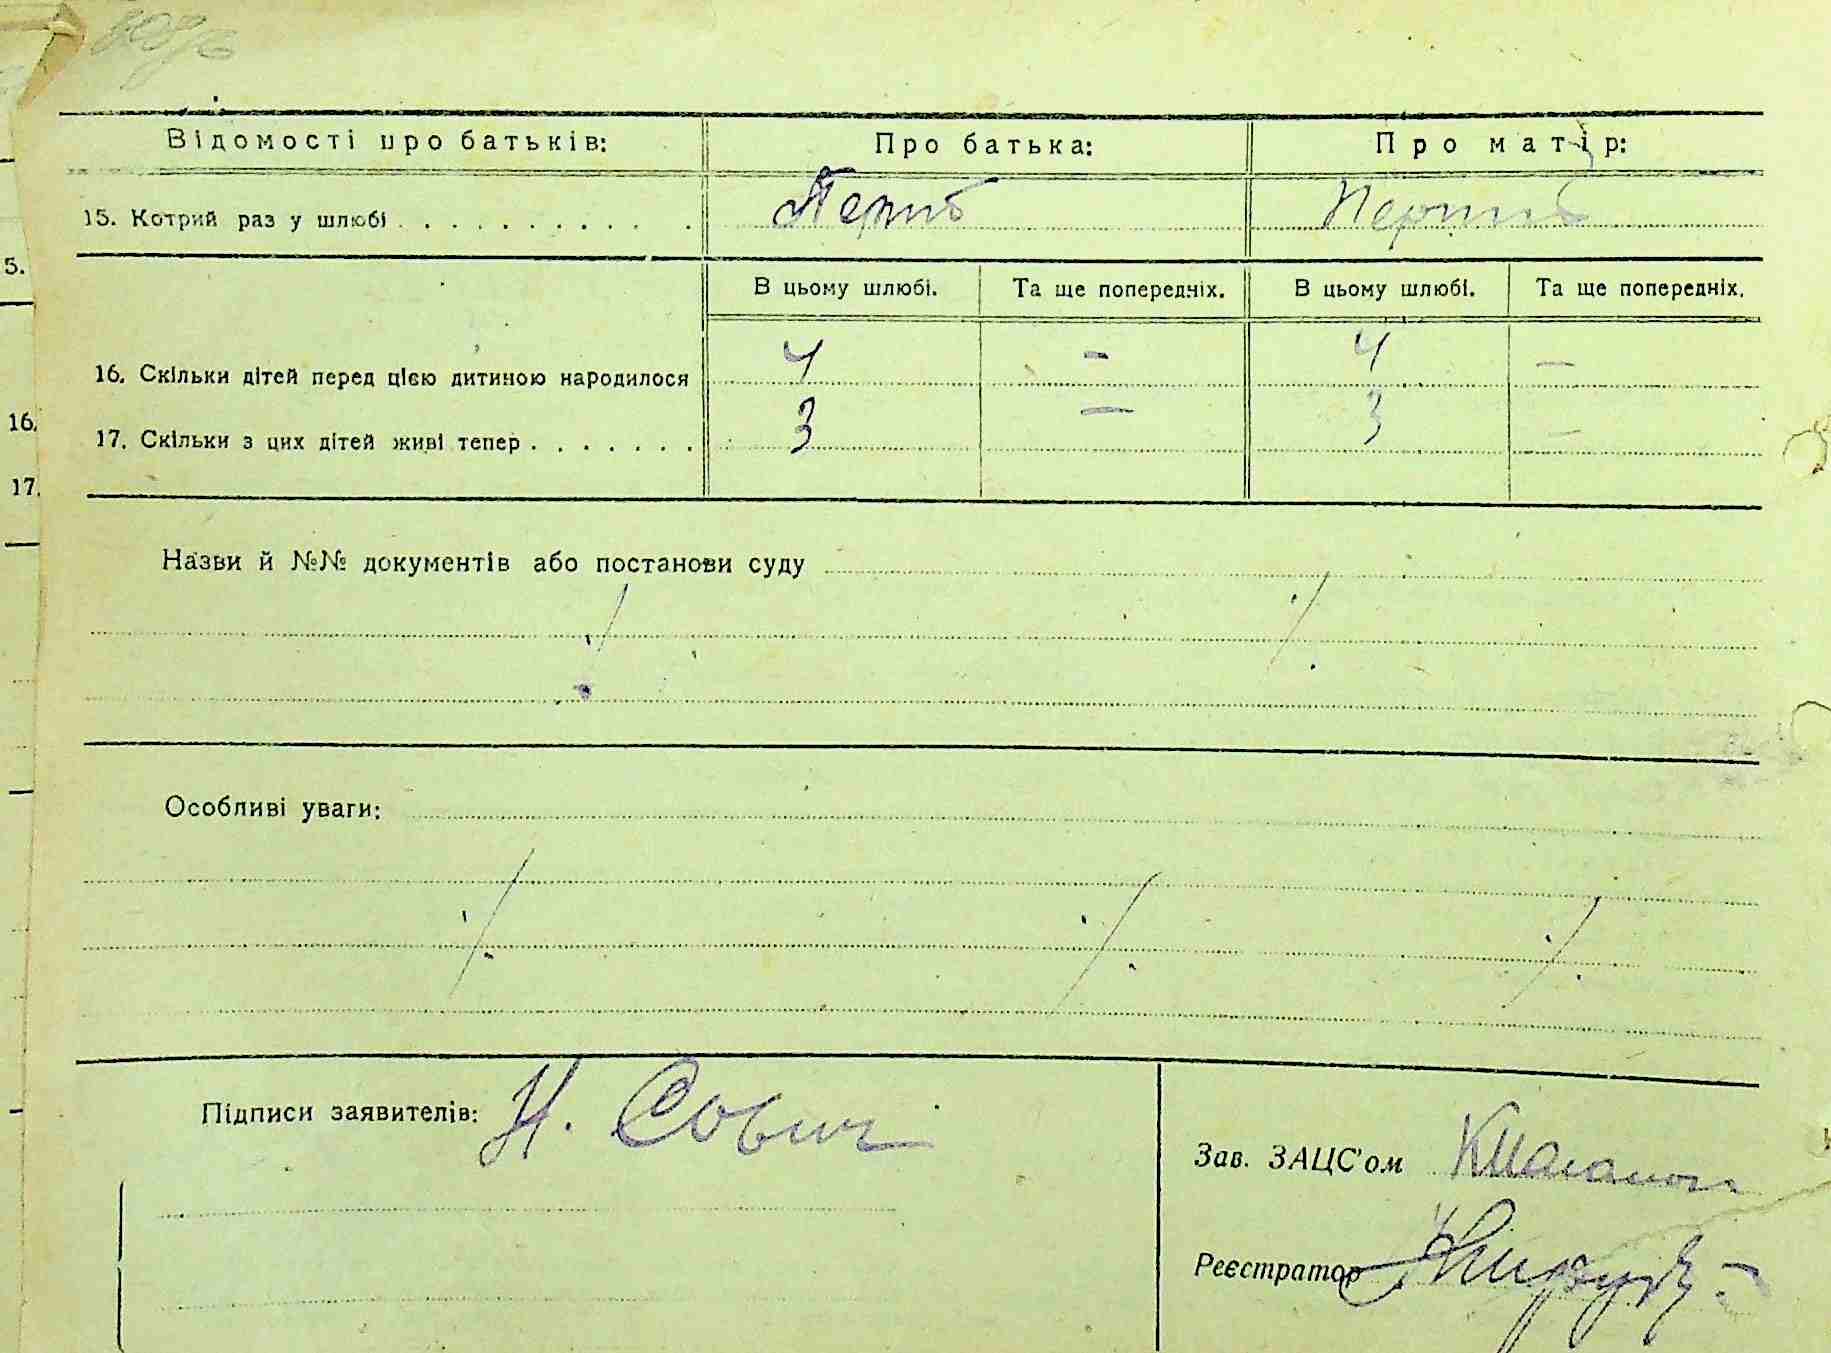 Відомості про батьків: Про батька: Про матір:
15. Котрий раз у шлюбі . . . . . . . . . . . Перший
5.
В цьому шлюбі. Та ще попередніх. В цьому шлюбі. Та ще попередніх.
16. Скільки дітей перед цією дитиною народилося 4 — 4 —
16.
17. Скільки з цих дітей живі тепер . . . . . . . 3 — 3 —
17.
Назви й №№ документів або постанови суду
Особливі уваги:
Підписи заявителів: Н. Сович
Зав. ЗАЦС'ом
Реєстратор